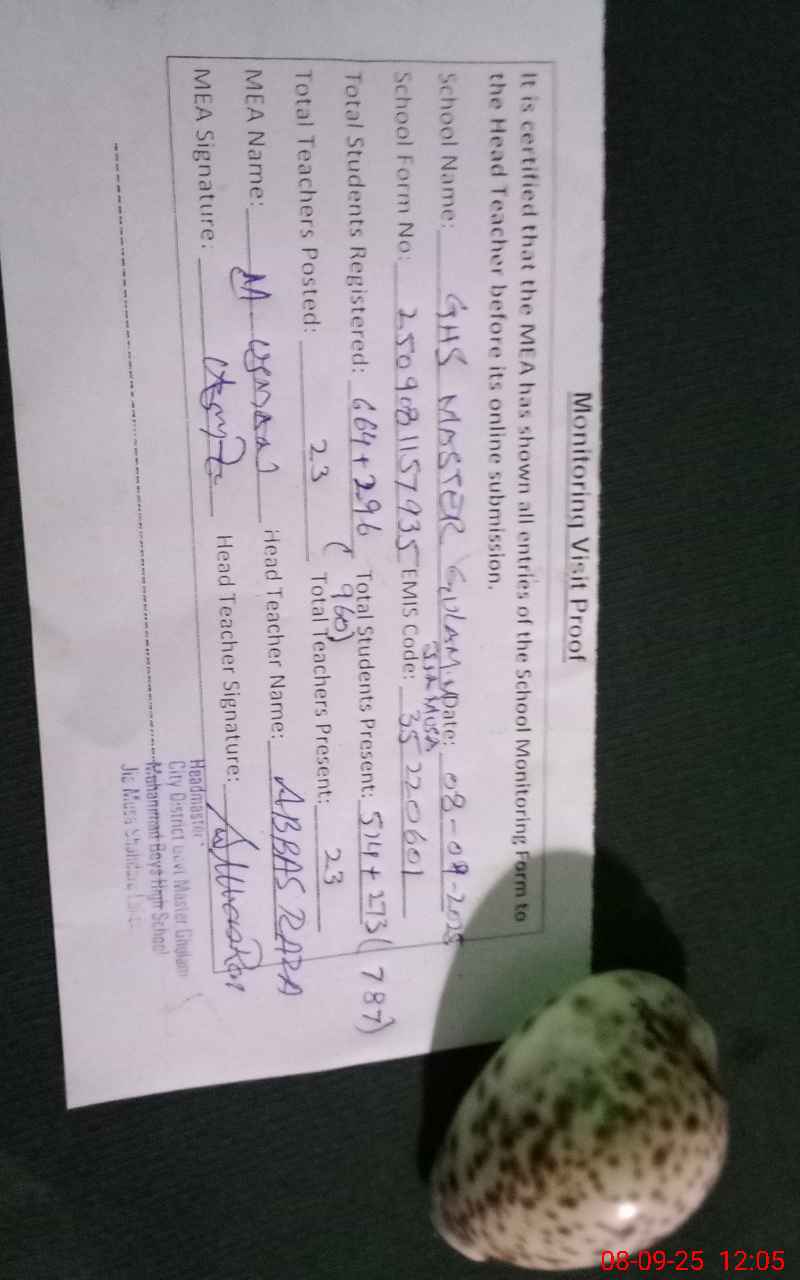 Monitoring Visit Proof
It is certified that the MEA has shown all entries of the School Monitoring Form to
the Head Teacher before its online submission.
School Name: GHS MASTER GULAM M Date: 08-09-2025
JIA MUSA
School Form No: 2509081157935 EMIS Code: 35220601
Total Students Registered: 664+296 (960) Total Students Present: 514+273 (787)
Total Teachers Posted: 23 Total Teachers Present: 23
MEA Name: M Usman Head Teacher Name: ABBAS RAZA
MEA Signature: Head Teacher Signature:
Headmaster
City District Govt Master Ghulam
Mohammad Boys High School
Jia Musa Shahdara
08-09-25 12:05